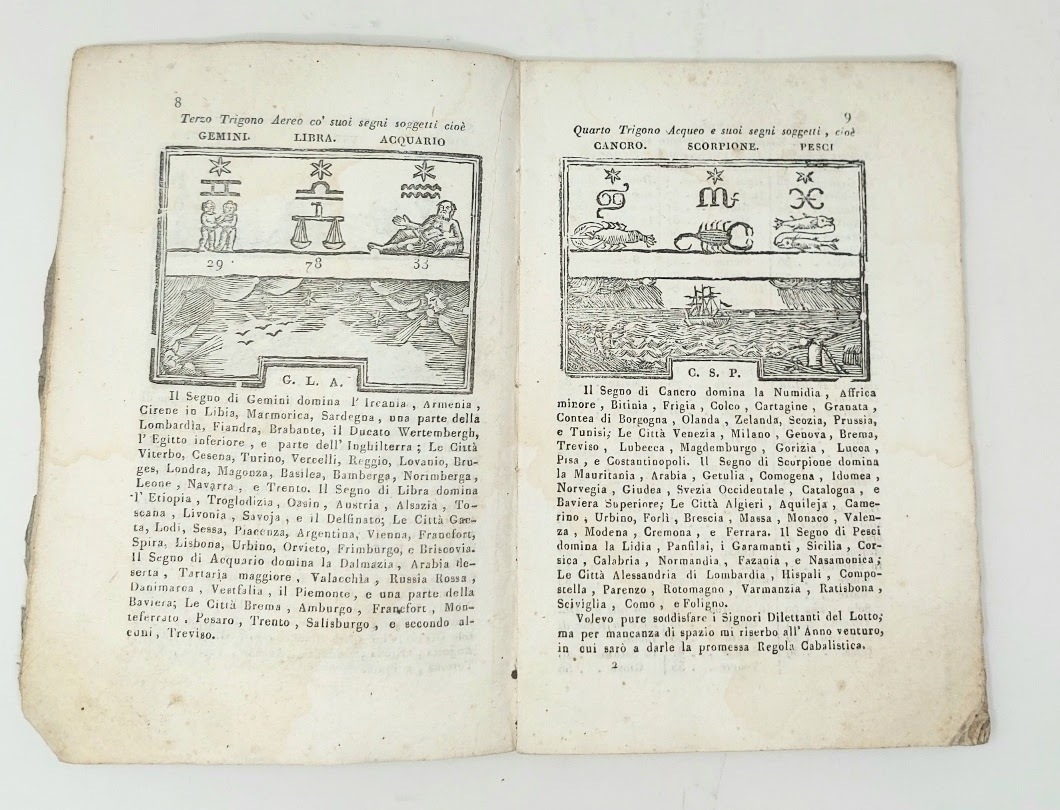 8
Terzo Trigono Aereo co' suoi segni soggetti cioè
GEMINI. LIBRA. ACQUARIO
29 78 33
G. L. A.
Il Segno di Gemini domina l' Ircania , Armenia ,
Cirene in Libia, Marmorica, Sardegna , una parte della
Lombardia, Fiandra, Brabante, il Ducato Wertembergh,
l' Egitto inferiore , e parte dell' Inghilterra ; Le Città
Viterbo, Cesena, Turino, Vercelli, Reggio, Lovanio, Bru-
ges, Londra, Magonza, Basilea, Bamberga, Norimberga,
Leone , Navarra , e Trento. Il Segno di Libra domina
l' Etiopia , Troglodizia , Oasin , Austria , Alsazia , To-
scana , Livonia , Savoja , e il Delfinato; Le Città Gae-
ta, Lodi, Sessa, Piacenza, Argentina, Vienna, Francfort,
Spira, Lisbona, Urbino, Orvieto, Frimburgo, e Briscovia.
Il Segno di Acquario domina la Dalmazia, Arabia de-
serta , Tartaria maggiore , Valacchia , Russia Rossa ,
Danimarca , Vestfalia , il Piemonte , e una parte della
Baviera; Le Città Brema , Amburgo , Francfort , Mon-
teferrato , Pesaro , Trento , Salisburgo , e secondo al-
cuni , Treviso.
9
Quarto Trigono Acqueo e suoi segni soggetti , cioè
CANCRO. SCORPIONE. PESCI
C. S. P.
Il Segno di Cancro domina la Numidia , Affrica
minore , Bitinia , Frigia , Colco , Cartagine , Granata ,
Contea di Borgogna , Olanda , Zelanda, Scozia, Prussia,
e Tunisi; Le Città Venezia , Milano , Genova , Brema,
Treviso , Lubecca , Magdemburgo , Gorizia , Lucca ,
Pisa , e Costantinopoli. Il Segno di Scorpione domina
la Mauritania , Arabia , Getulia , Comogena , Idomea ,
Norvegia , Giudea , Svezia Occidentale , Catalogna , e
Baviera Superiore; Le Città Algieri , Aquileja , Came-
rino , Urbino, Forlì , Brescia , Massa , Monaco , Valen-
za , Modena , Cremona , e Ferrara. Il Segno di Pesci
domina la Lidia , Panfilai , i Garamanti , Sicilia , Cor-
sica , Calabria , Normandia , Fazania , e Nasamonica;
Le Città Alessandria di Lombardia , Hispali , Compo-
stella , Parenzo , Rotomagno , Varmanzia , Ratisbona ,
Sciviglia , Como , e Foligno.
Volevo pure soddisfare i Signori Dilettanti del Lotto,
ma per mancanza di spazio mi riserbo all' Anno venturo,
in cui sarò a darle la promessa Regola Cabalistica.
2